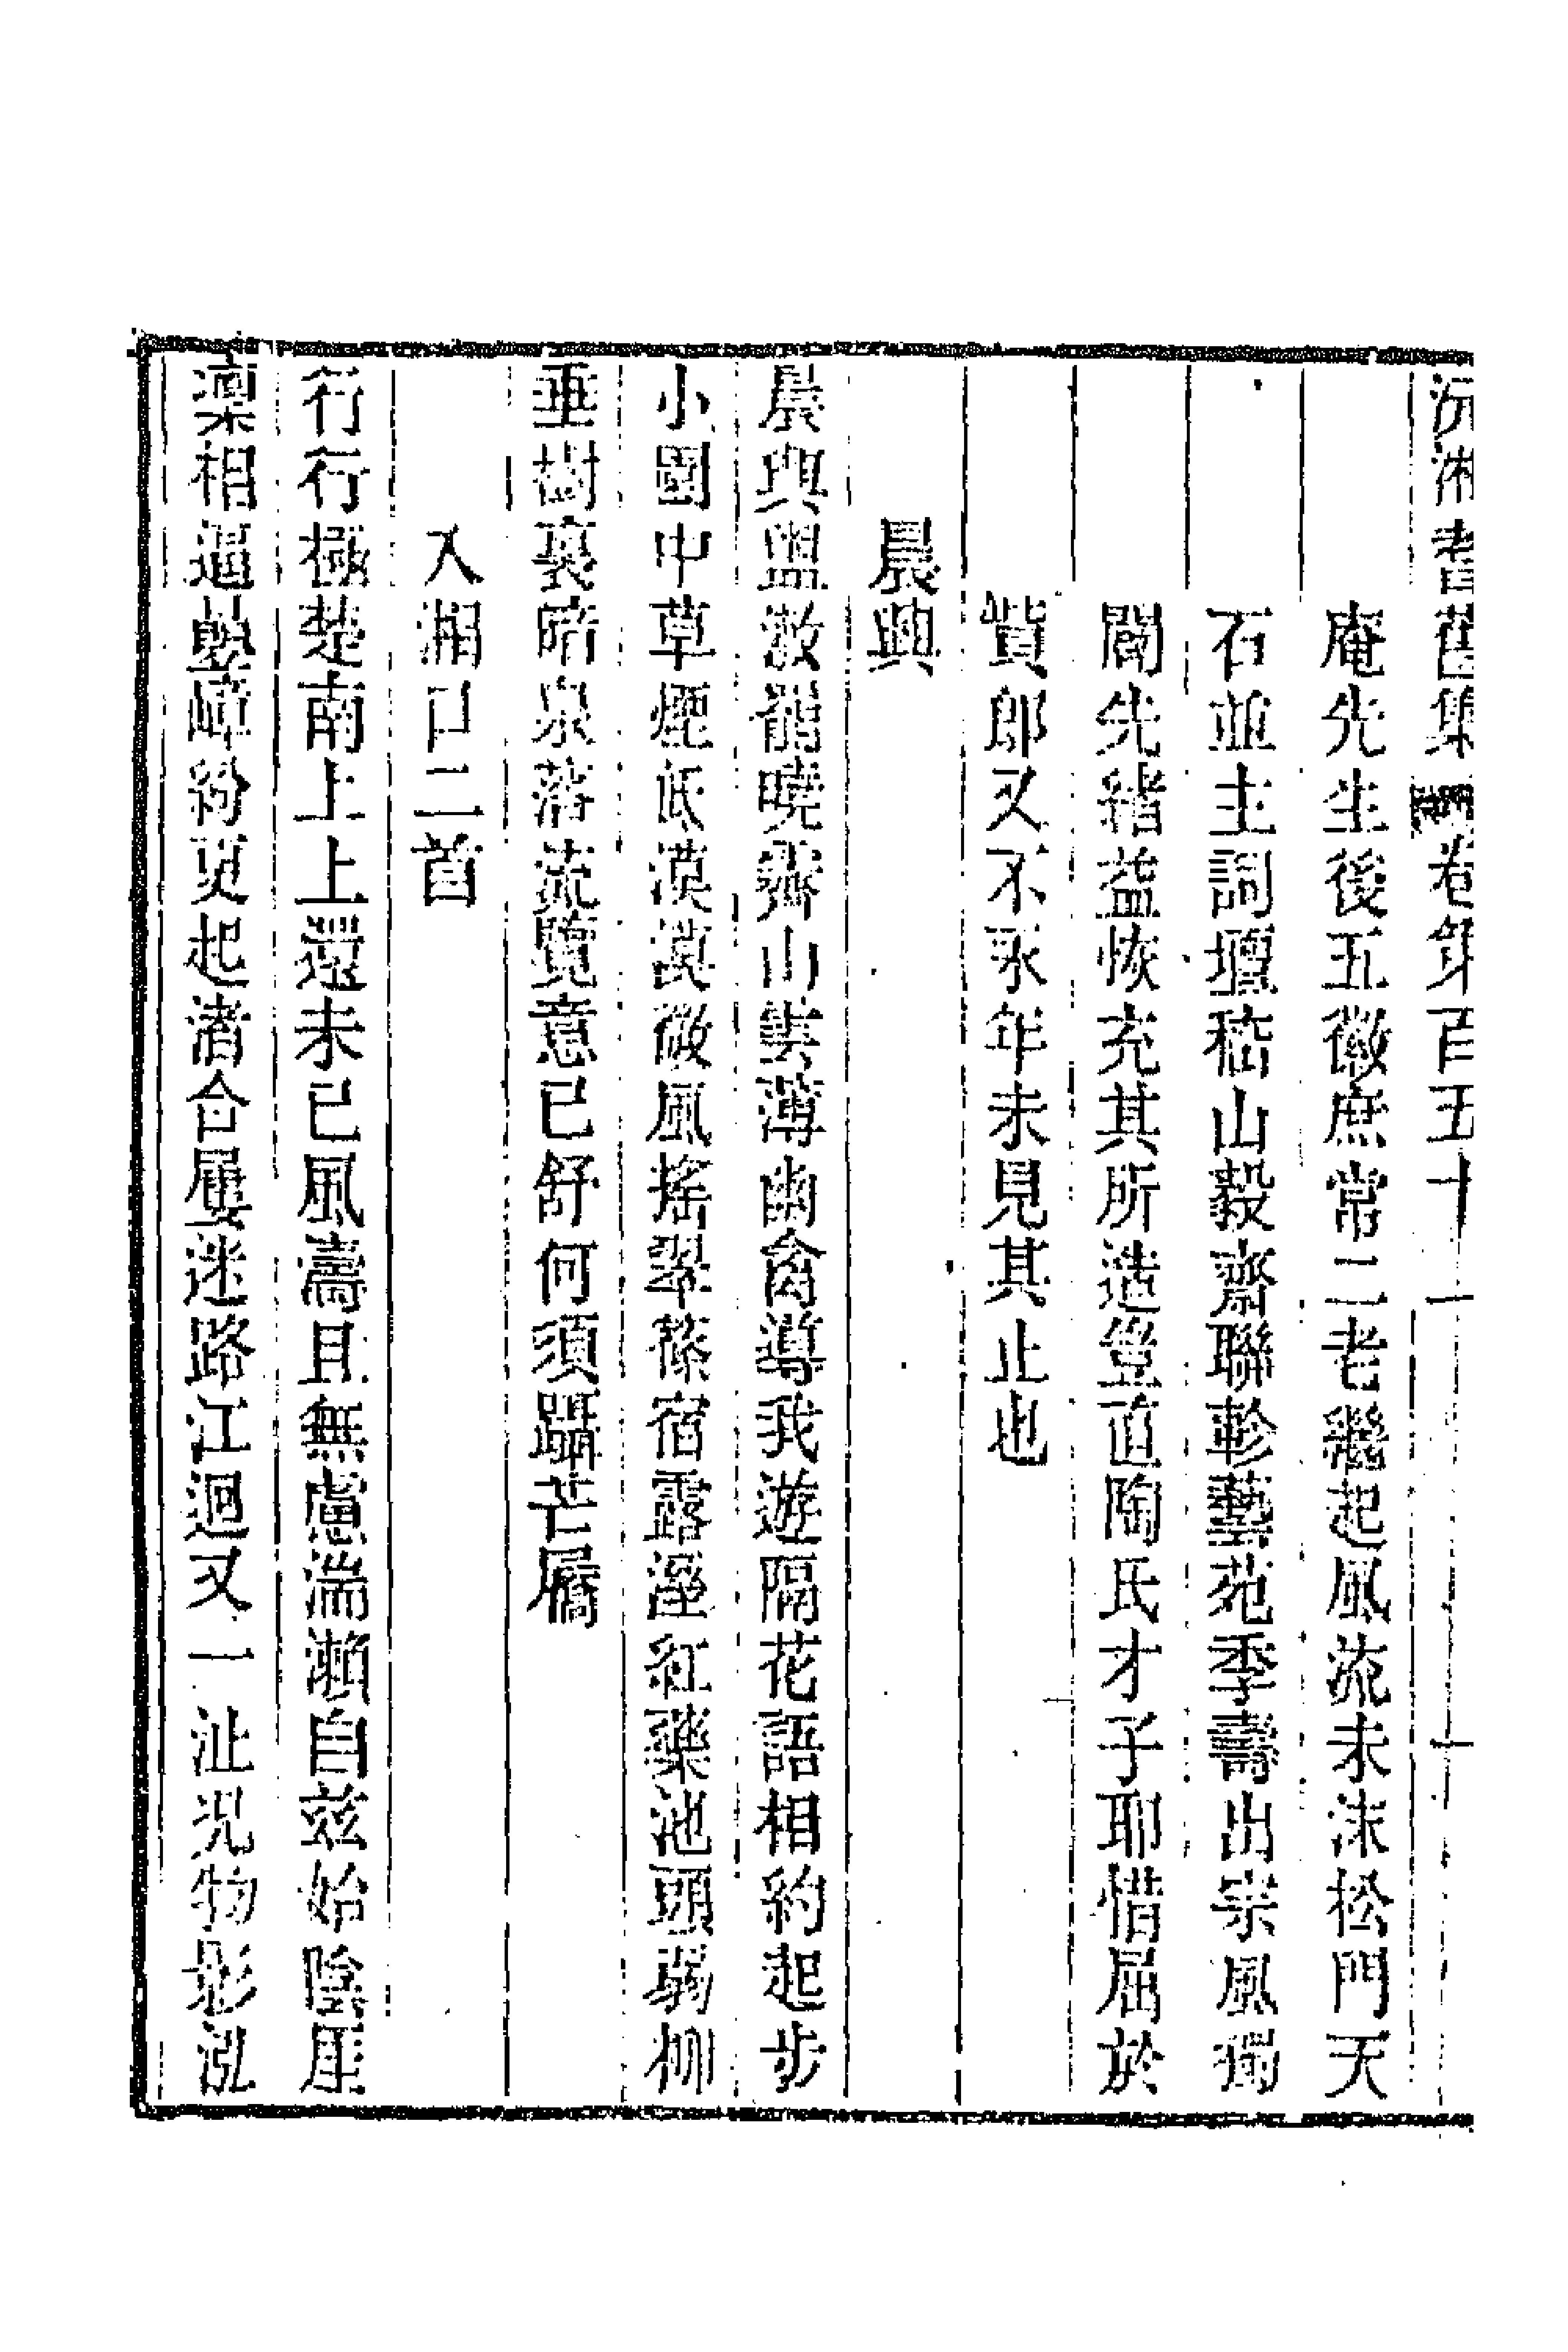 沅湘耆舊集卷第百五十一 十
庵先生後五徽庶常二老繼起風流未沫松門天
石並主詞壇嵇山毅齋聯軫藝苑季壽出宗風獨
閒先緒益恢充其所造豈直陶氏才子耶惜屈於
貲郎又不永年未見其止也
晨興
晨興盥漱罷曉霽山雲薄幽禽導我遊隔花語相約起步
小園中草煙低漠漠微風搖翠篠宿露溼紅藥池頭弱柳
垂樹裏暗泉落流覽意已舒何須躡芒屩
入湘口二首
行行極楚南上上還未已風濤且無慮湍瀨自茲始陰厓
凜相逼疊嶂紛更起渚合屢迷路江迴又一沚況物影泓